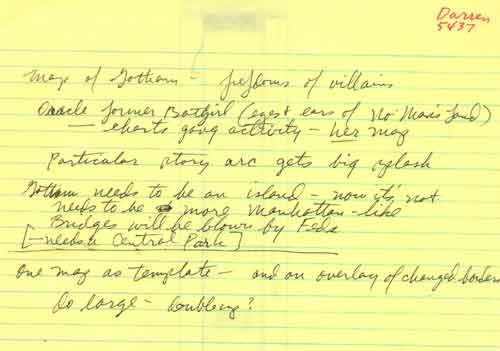 Darren
5437
Map of Gotham - fiefdoms of villains
Oracle former Batgirl (eyes & ears of No Man's Land)
- charts gang activity - her map
Particular story arc gets big splash
Gotham needs to be an island - now it's not
needs to be more Manhattan-like
Bridges will be blown by Feds
[-needs a Central Park]
One map as template - and an overlay of changed borders
Do large - doubling?